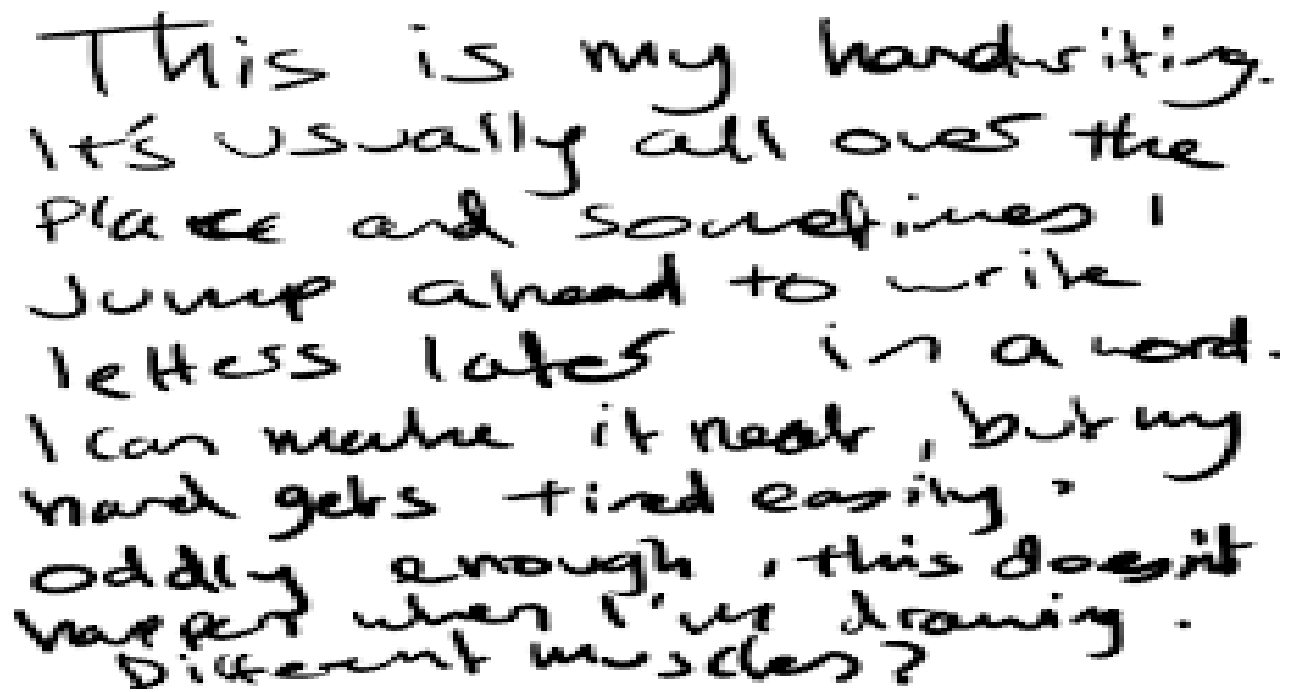 This is my handwriting.
It's usually all over the
place and sometimes I
Jump ahead to write
letters later in a word.
I can make it neat, but my
hand gets tired easily.
oddly enough, this doesn't
happen when I'm drawing.
Different muscles?